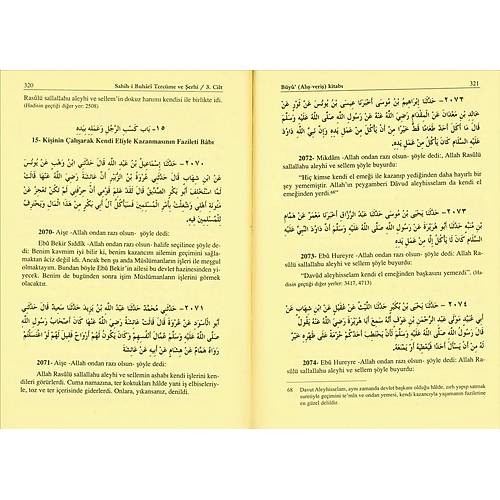 320 Sahih-i Buhârî Tercüme ve Şerhi / 3. Cilt
Rasûlü sallallahu aleyhi ve sellem'in dokuz hanımı kendisi ile birlikte idi.
(Hadisin geçtiği diğer yer: 2508)
١٥- بَاب كَسْبِ الرَّجُلِ وَعَمَلِهِ بِيَدِهِ
15- Kişinin Çalışarak Kendi Eliyle Kazanmasının Fazileti Bâbı
٢٠٧٠- حَدَّثَنَا إِسْمَاعِيلُ بْنُ عَبْدِ اللَّهِ قَالَ حَدَّثَنِي ابْنُ وَهْبٍ عَنْ يُونُسَ
عَنِ ابْنِ شِهَابٍ قَالَ حَدَّثَنِي عُرْوَةُ بْنُ الزُّبَيْرِ أَنَّ عَائِشَةَ رَضِيَ اللَّهُ عَنْهَا قَالَتْ
لَمَّا اسْتُخْلِفَ أَبُو بَكْرٍ الصِّدِّيقُ قَالَ لَقَدْ عَلِمَ قَوْمِي أَنَّ حِرْفَتِي لَمْ تَكُنْ تَعْجِزُ عَنْ
مَئُونَةِ أَهْلِي وَشُغِلْتُ بِأَمْرِ الْمُسْلِمِينَ فَسَيَأْكُلُ آلُ أَبِي بَكْرٍ مِنْ هَذَا الْمَالِ وَيَحْتَرِفُ
لِلْمُسْلِمِينَ فِيهِ.
2070- Aişe -Allah ondan razı olsun- şöyle dedi:
Ebû Bekir Sıddîk -Allah ondan razı olsun- halife seçilince şöyle de-
di: Benim kavmim iyi bilir ki, benim kazancım ailemin geçimini sağla-
maktan âciz değildi. Ancak ben şu anda Müslümanların işleri ile meşgul
olmaktayım. Bundan böyle Ebû Bekir'in ailesi bu devlet hazinesinden yi-
yecek. Benim de bugünkü işim, Müslümanların işlerini görmek
olacaktır.
٢٠٧١- حَدَّثَنِي مُحَمَّدٌ حَدَّثَنَا عَبْدُ اللَّهِ بْنُ يَزِيدَ حَدَّثَنَا سَعِيدٌ قَالَ حَدَّثَنِي
أَبُو الْأَسْوَدِ عَنْ عُرْوَةَ قَالَ قَالَتْ عَائِشَةُ رَضِيَ اللَّهُ عَنْهَا كَانَ أَصْحَابُ رَسُولِ اللَّهِ
صَلَّى اللَّهُ عَلَيْهِ وَسَلَّمَ عُمَّالَ أَنْفُسِهِمْ وَكَانَ يَكُونُ لَهُمْ أَرْوَاحٌ فَقِيلَ لَهُمْ لَوِ اغْتَسَلْتُمْ
رَوَاهُ هَمَّامٌ عَنْ هِشَامٍ عَنْ أَبِيهِ عَنْ عَائِشَةَ
2071- Aişe -Allah ondan razı olsun- şöyle dedi:
Allah Rasûlü sallallahu aleyhi ve sellemin ashabı kendi işlerini ken-
dileri görürlerdi. Cuma namazına, ter koktukları hâlde yani iş elbiseleriy-
le, toz ve ter içerisinde giderlerdi. Onlara, yıkansanız, denildi.
Büyû' (Alış-veriş) kitabı 321
٢٠٧٢- حَدَّثَنَا إِبْرَاهِيمُ بْنُ مُوسَى أَخْبَرَنَا عِيسَى بْنُ يُونُسَ عَنْ ثَوْرٍ عَنْ
خَالِدِ بْنِ مَعْدَانَ عَنِ الْمِقْدَامِ رَضِيَ اللَّهُ عَنْهُ عَنْ رَسُولِ اللَّهِ صَلَّى اللَّهُ عَلَيْهِ وَسَلَّمَ
قَالَ مَا أَكَلَ أَحَدٌ طَعَامًا قَطُّ خَيْرًا مِنْ أَنْ يَأْكُلَ مِنْ عَمَلِ يَدِهِ وَإِنَّ نَبِيَّ اللَّهِ دَاوُدَ
كَانَ يَأْكُلُ مِنْ عَمَلِ يَدِهِ.
2072- Mikdâm -Allah ondan razı olsun- şöyle dedi:, Allah Rasûlü
sallallahu aleyhi ve sellem şöyle buyurdu:
"Hiç kimse kendi el emeği ile kazanıp yediğinden daha hayırlı bir
şey yememiştir. Allah'ın peygamberi Dâvud aleyhisselam da kendi el
emeğinden yerdi.68"
٢٠٧٣- حَدَّثَنَا يَحْيَى بْنُ مُوسَى حَدَّثَنَا عَبْدُ الرَّزَّاقِ أَخْبَرَنَا مَعْمَرٌ عَنْ هَمَّامِ
بْنِ مُنَبِّهٍ حَدَّثَنَا أَبُو هُرَيْرَةَ عَنْ رَسُولِ اللَّهِ صَلَّى اللَّهُ عَلَيْهِ وَسَلَّمَ أَنَّ دَاوُدَ النَّبِيَّ عَلَيْهِ
السَّلَام كَانَ لَا يَأْكُلُ إِلَّا مِنْ عَمَلِ يَدِهِ
2073- Ebû Hureyre -Allah ondan razı olsun- şöyle dedi: Allah Ra-
sûlü sallallahu aleyhi ve sellem şöyle buyurdu:
"Davûd aleyhisselam kendi el emeğinden başkasını yemezdi". (Ha-
disin geçtiği diğer yerler: 3417, 4713)
٢٠٧٤- حَدَّثَنَا يَحْيَى بْنُ بُكَيْرٍ حَدَّثَنَا اللَّيْثُ عَنْ عُقَيْلٍ عَنِ ابْنِ شِهَابٍ عَنْ
أَبِي عُبَيْدٍ مَوْلَى عَبْدِ الرَّحْمَنِ بْنِ عَوْفٍ أَنَّهُ سَمِعَ أَبَا هُرَيْرَةَ رَضِيَ اللَّهُ عَنْهُ يَقُولُ
قَالَ رَسُولُ اللَّهِ صَلَّى اللَّهُ عَلَيْهِ وَسَلَّمَ لَأَنْ يَحْتَطِبَ أَحَدُكُمْ حُزْمَةً عَلَى ظَهْرِهِ خَيْرٌ
لَهُ مِنْ أَنْ يَسْأَلَ أَحَدًا فَيُعْطِيَهُ أَوْ يَمْنَعَهُ.
2074- Ebû Hureyre -Allah ondan razı olsun- şöyle dedi: Allah Ra-
sûlü sallallahu aleyhi ve sellem şöyle buyurdu:
68 Davut Aleyhisselam, aynı zamanda devlet başkanı olduğu hâlde, zırh yapıp satmak
suretiyle geçimini te'mîn ve ondan yemesi, kendi kazancıyla yaşamanın faziletine
en güzel delildir.